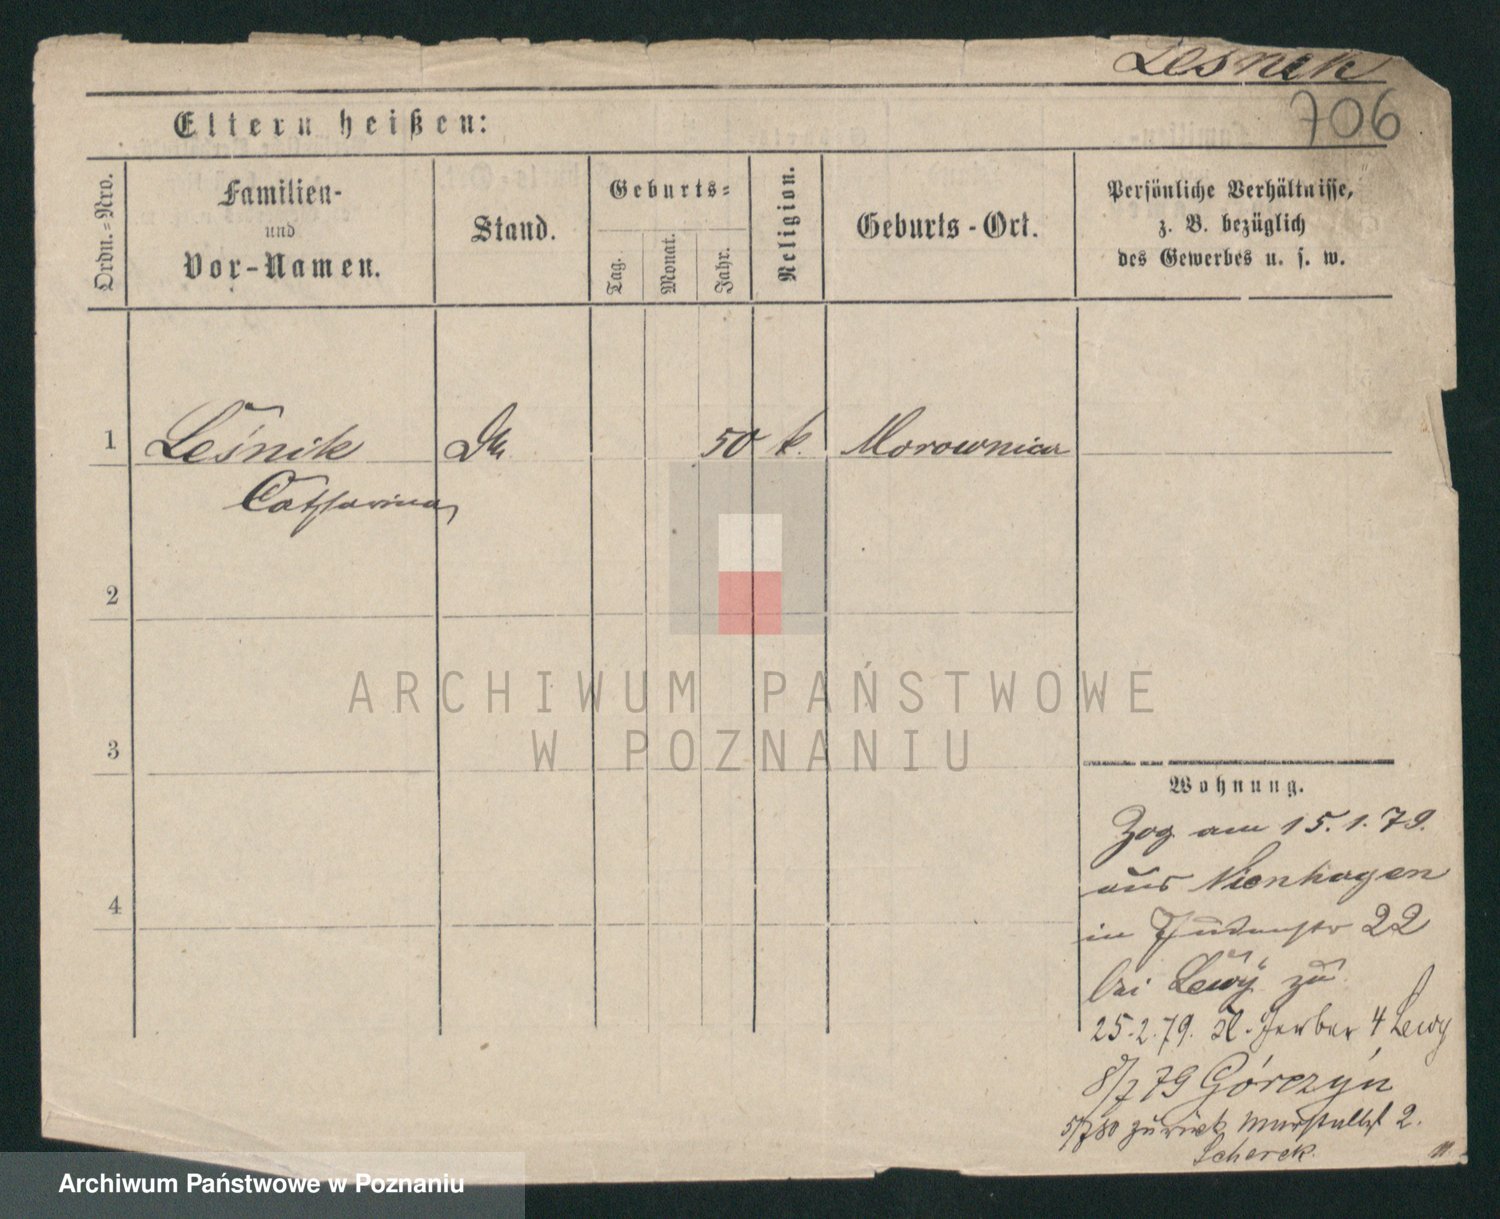 Leśnik
706
Eltern heißen:
Ordn.-Nro.
Familien-
und
Vor-Namen.
Stand.
Geburts-
Tag.
Monat.
Jahr.
Religion.
Geburts-Ort.
Persönliche Verhältnisse,
z. B. bezüglich
des Gewerbes u. s. w.
1 Leśnik 50 k. Morownica
Catharina
2
3
4
ARCHIWUM PAŃSTWOWE
W POZNANIU
Wohnung.
Zog am 15.1.79.
aus Nienhagen
in Judenstr 22
bei Lewÿ zu
25.2.79. Kl. Gerber 4 Lewy
8/7 79 Górczyn
5/7 80 zurück 2.
Scherek.
Archiwum Państwowe w Poznaniu